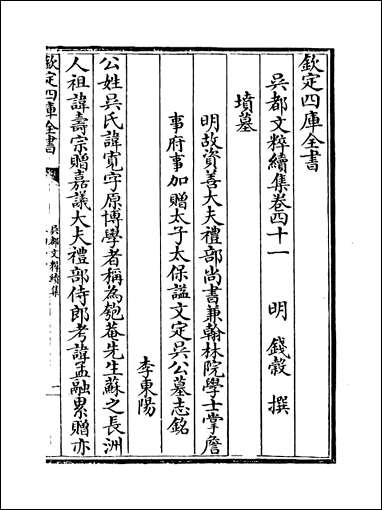 欽定四庫全書
吳都文粹續集卷四十一 明 錢穀 撰
墳墓
明故資善大夫禮部尚書兼翰林院學士掌詹
事府事加贈太子太保謚文定吳公墓志銘
李東陽
公姓吳氏諱寬字原博學者稱為匏菴先生蘇之長洲
人祖諱壽宗贈嘉議大夫禮部侍郎考諱孟融累贈亦
欽定四庫全書
吳都文粹續集
一